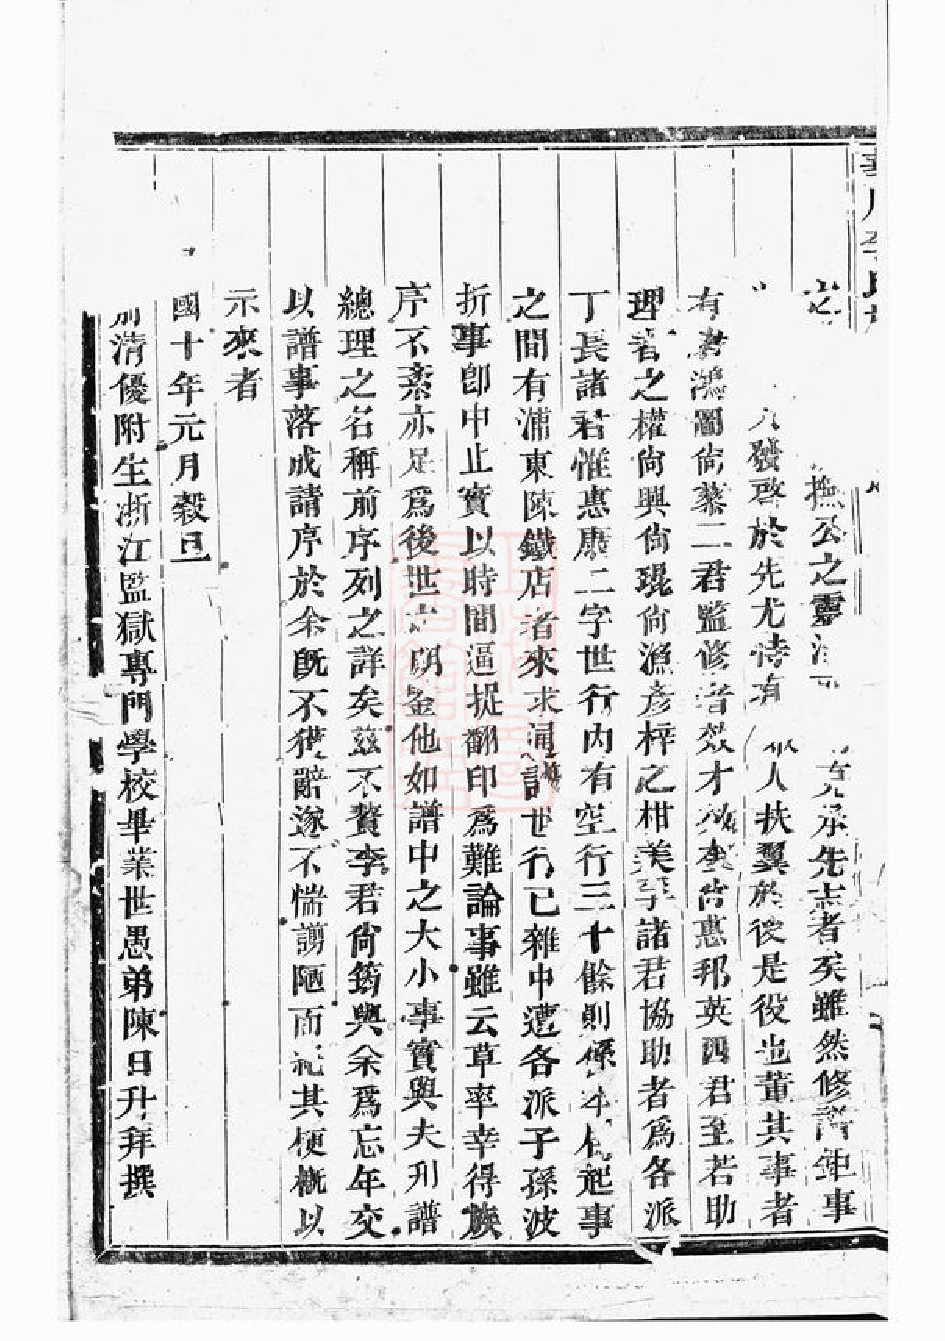 撫公之靈 克承先志者矣雖然修譜鉅事
發啓於先尤恃有 人扶翼於後是役也董其事者
有君鴻圖尙蓁二君監修者 才 尙惠邦英四君至若助
理者之權尙興尙琨尙漁彥梓之柑美孚諸君協助者爲各派
丁長諸君惟惠康二字世行內有空行三十餘則係 起事
之間有浦東陳鐵店者來求通譜世行已雜中遭各派子孫波
折事卽中止實以時間逼捉翻印爲難論事雖云草率幸得族
序不紊亦足爲後世之明鑒他如譜中之大小事實與夫刋譜
總理之名稱前序列之詳矣茲不贅李君尙筠與余爲忘年交
以譜事落成請序於余旣不獲辭遂不惴謭陋而紀其梗概以
示來者
國十年元月穀旦
前淸優附生浙江監獄專門學校畢業世愚弟陳日升拜撰